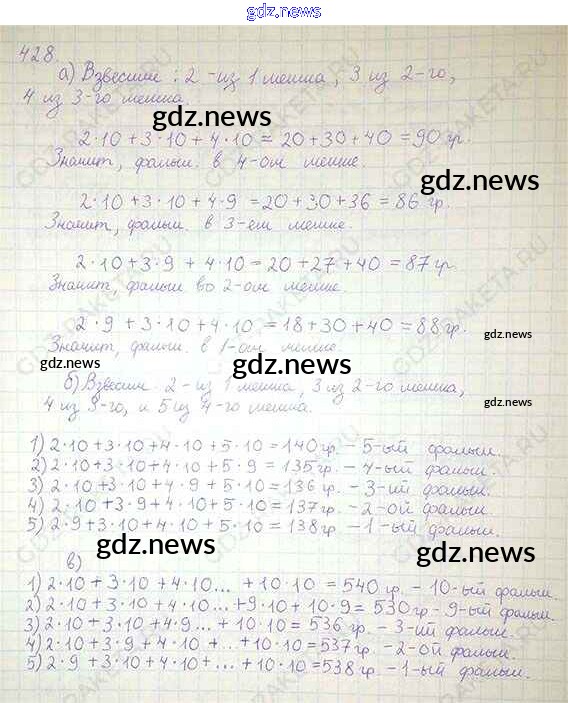 gdz.news
428.
а) Взвесим: 2 - из 1 мешка, 3 из 2-го,
4 из 3-го мешка.
gdz.news
2·10+3·10+4·10 = 20+30+40 = 90 гр.
Значит, фальш. в 4-ом мешке.
gdz.news
2·10+3·10+4·9 = 20+30+36 = 86 гр.
Значит, фальш. в 3-ем мешке.
2·10+3·9+4·10 = 20+27+40 = 87 гр
Значит, фальш во 2-ом мешке.
2·9+3·10+4·10 = 18+30+40 = 88 гр.
gdz.news
Значит, фальш. в 1-ом мешке.
gdz.news
б) Взвесим: 2 - из 1 мешка, 3 из 2-го мешка,
4 из 3-го, и 5 из 4-го мешка.
gdz.news
1) 2·10+3·10+4·10+5·10 = 140 гр. - 5-ый фальш.
2) 2·10+3·10+4·10+5·9 = 135 гр. - 4-ый фальш.
3) 2·10+3·10+4·9+5·10 = 136 гр. - 3-ий фальш.
4) 2·10+3·9+4·10+5·10 = 137 гр. - 2-ой фальш.
5) 2·9+3·10+4·10+5·10 = 138 гр. - 1-ый фальш.
gdz.news
gdz.news
в)
1) 2·10+3·10+4·10... +10·10 = 540 гр. - 10-ый фальш.
2) 2·10+3·10+4·10...+9·10+10·9 = 530 гр - 9-ый фальш.
3) 2·10+3·10+4·9...+10·10 = 536 гр. - 3-ий фальш.
4) 2·10+3·9+4·10+...+10·10 = 537 гр. - 2-ой фальш.
5) 2·9+3·10+4·10+...+10·10 = 538 гр. - 1-ый фальш.